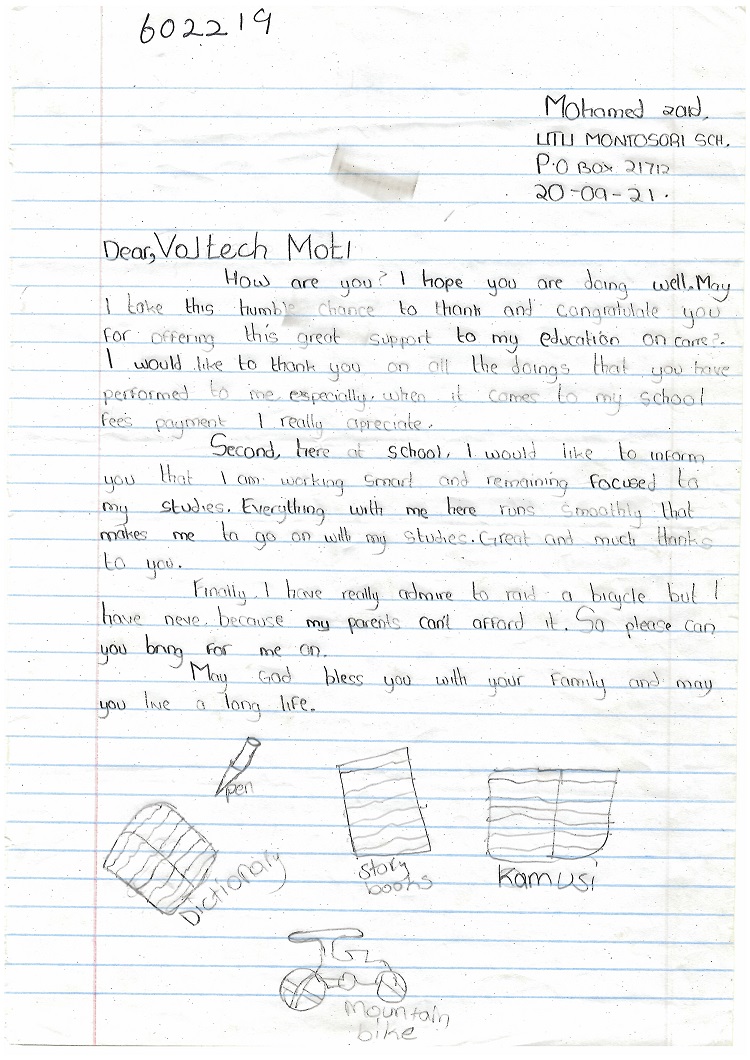 602219
Mohamed zaid.
UTU MONTOSORI SCH.
P.O BOX 21712
20-09-21.
Dear, Voltech Moti
How are you? I hope you are doing well. May
I take this humble chance to thank and congratulate you
for offering this great support to my education on
I would like to thank you on all the doings that you have
performed to me especially. when it comes to my school
fees payment I really apreciate.
Second, here at school, I would like to inform
you that I am working smart and remaining focused to
my studies. Everything with me here runs smoothly that
makes me to go on with my studies. Great and much thanks
to you.
Finally I have really admire to raid a bicycle but I
have neve because my parents can't afford it. So please can
you bring for me on.
May God bless you with your family and may
you live a long life.
pen
Dictionary
story
books
Kamusi
mountain
bike